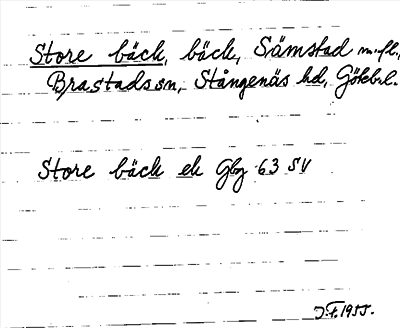 Store bäck, bäck, Sämstad m.fl.,
Brastads sn, Stångenäs hd, Götebl.
Store bäck ek Gbg 63 SV
J.F. 1955.